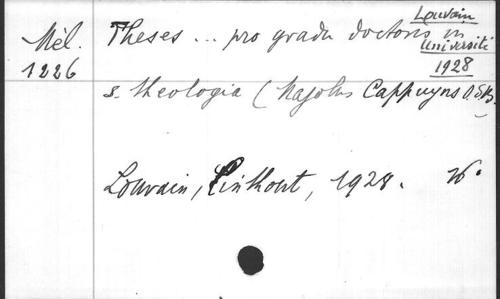 Mél.
1226
Louvain
Université
1928
Theses ... pro gradu doctoris in
s. theologia (Majolus Cappuyns O.S.B.
Louvain, Linthout, 1928.